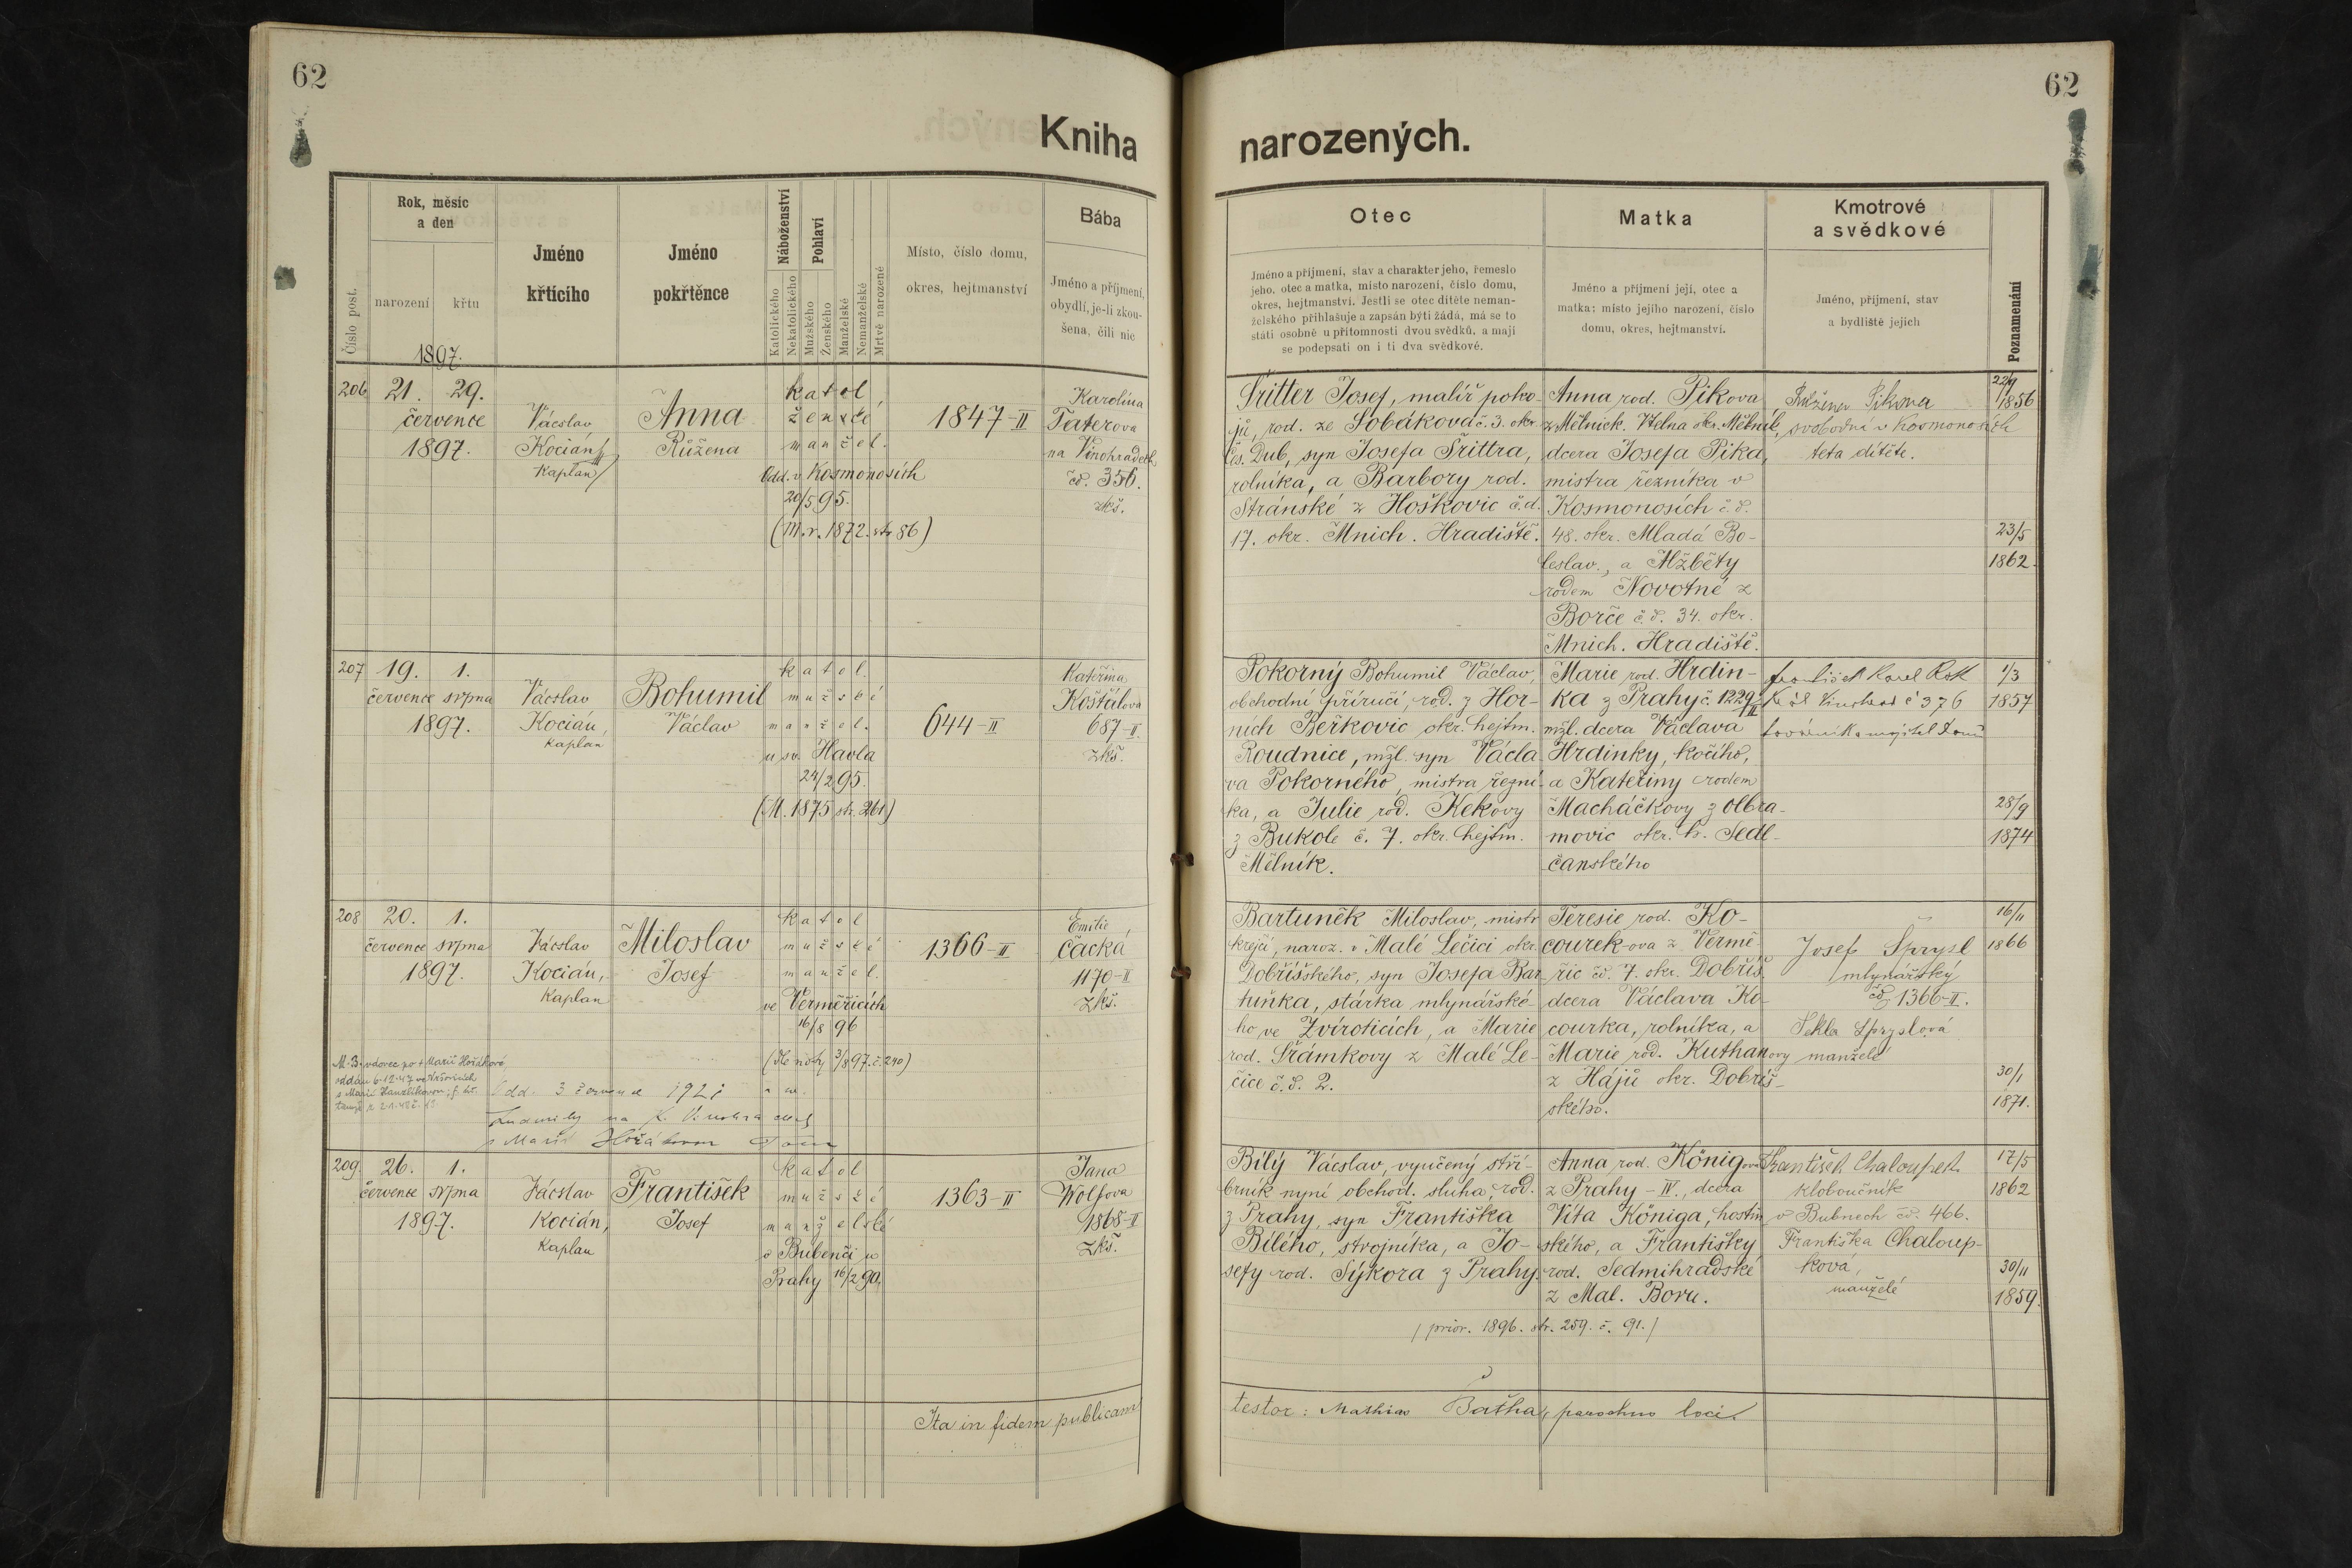 62
Kniha
Rok, měsíc
a den
Číslo post.
narození
křtu
1897.
Jméno
křtícího
Jméno
pokřtěnce
Náboženství
Katolického
Nekatolického
Pohlaví
Mužského
Ženského
Manželské
Nemanželské
Mrtvě narozené
Místo, číslo domu,
okres, hejtmanství
Bába
Jméno a příjmení,
obydlí, je-li zkou-
šena, čili nic
206
21. 29.
července
1897.
Vácslav
Kocián,
Kaplan
Anna
Růžena
katol.
ženské
manžel.
Odd. v Kosmonosích
20/5 95.
(M.r. 1872. str 86)
1847-II
Karolína
Taterova
na Vinohradech
čd. 356.
zkš.
207
19. 1.
července srpna
1897.
Vácslav
Kocián,
Kaplan
Bohumil
Václav
katol.
mužské
manžel.
u sv. Havla
24/2 95.
(M. 1875 str. 261)
644-II
Kateřina
Košťálova
687-II.
zkš.
208
20. 1.
července srpna
1897.
Vácslav
Kocián,
Kaplan
Miloslav
Josef
katol
mužské
manžel.
ve Verměřicích
16/8 96
3/8 97. č. 240)
1366-II
Emilie
Čacká
1170-II
zkš.
vdovec po † Marii Hořákové
oddán 6.12.47
s Marií
Odd. 3 července 1921
Ludmily na K. Vinohradech
s Marií Hořákovou
209.
26. 1.
července srpna
1897.
Vácslav
Kocián,
Kaplan
František
Josef
katol
mužské
manželské
v Bubenči u
Prahy 16/2 90.
1363-II
Jana
Wolfova
1868-II
zkš.
Ita in fidem publicam
62
narozených.
Otec
Jméno a příjmení, stav a charakter jeho, řemeslo
jeho, otec a matka, místo narození, číslo domu,
okres, hejtmanství. Jestli se otec dítěte neman-
želského přihlašuje a zapsán býti žádá, má se to
státi osobně u přítomnosti dvou svědků, a mají
se podepsati on i ti dva svědkové.
Matka
Jméno a příjmení její, otec a
matka; místo jejího narození, číslo
domu, okres, hejtmanství.
Kmotrové
a svědkové
Jméno, příjmení, stav
a bydliště jejich
Poznamenání
Šritter Josef, malíř poko-
jů, rod. ze Sobákova č. 3. okr.
Čes. Dub, syn Josefa Šrittra,
rolníka, a Barbory rod.
Stránské z Hoškovic č.d.
17. okr. Mnich. Hradiště.
Anna rod. Pikova
z Mělnick. Vtelna okr. Mělník,
dcera Josefa Pika,
mistra řezníka v
Kosmonosích č.d.
48. okr. Mladá Bo-
leslav., a Alžběty
rodem Novotné z
Borče č.d. 34. okr.
Mnich. Hradiště.
Růžena Pikova
svobodná v Kosmonosích
teta dítěte.
22/9
1856
23/5
1862.
Pokorný Bohumil Václav,
obchodní příručí, rod. z Hor-
ních Beřkovic okr. hejtm.
Roudnice, mžl. syn Václa
va Pokorného, mistra řezní-
ka, a Julie rod. Kekovy
z Bukole č. 7. okr. hejtm.
Mělník.
Marie rod. Hrdin-
ka z Prahy č. 1229/II
mžl. dcera Václava
Hrdinky, kočího,
a Kateřiny rodem
Macháčkovy z Olbra-
movic okr. h. Sedl-
čanského
František Karel Rok
Král Vinohrad č 376
továrník a majitel domu
1/3
1857
28/9
1874
Bartuněk Miloslav, mistr
krejčí, naroz. v Malé Lečici okr.
Dobříšského, syn Josefa Bar-
tuňka, stárka mlynářské-
ho ve Zvíroticích, a Marie
rod. Šrámkovy z Malé Le-
čice č.d. 2.
Teresie rod. Ko-
courek-ova z Vermě-
řic čd. 7. okr. Dobříš.
dcera Václava Ko-
courka, rolníka, a
Marie rod. Kuthanovy
z Hájů okr. Dobříš-
ského.
Josef Šprysl
mlynářský
čd 1366-II.
Tekla Špryslová
manželé
16/11
1866
30/1
1871.
Bílý Vácslav, vyučený stří-
brník nyní obchod. sluha, rod.
z Prahy, syn Františka
Bílého, strojníka, a Jo-
sefy rod. Sýkora z Prahy.
Anna rod. Königova
z Prahy-IV., dcera
Víta Königa, hostin
ského, a Františky
rod. Sedmihradské
z Mal. Boru.
/prior. 1896. str. 259. č. 91./
František Chaloupek
kloboučník
v Bubnech čd. 466.
Františka Chaloup-
ková,
manželé
17/5
1862
30/11
1859.
testor: Mathias Baťha, parochus loci.